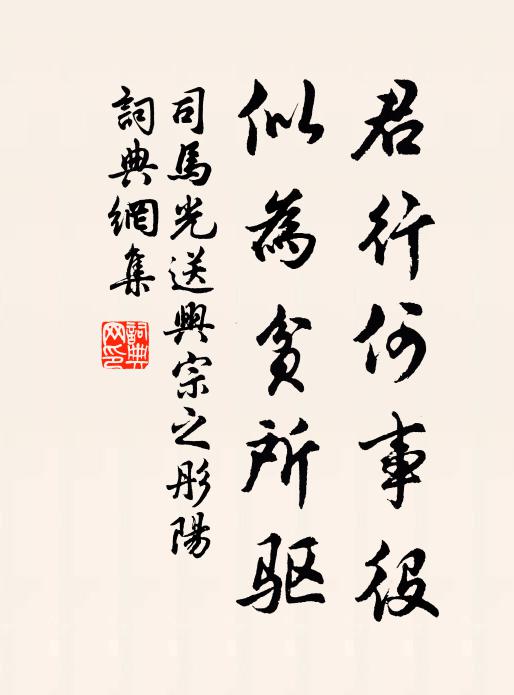 君行何事役
似為貧所驱
司馬光送興宗之彤陽
詞典網集
詞典
网印